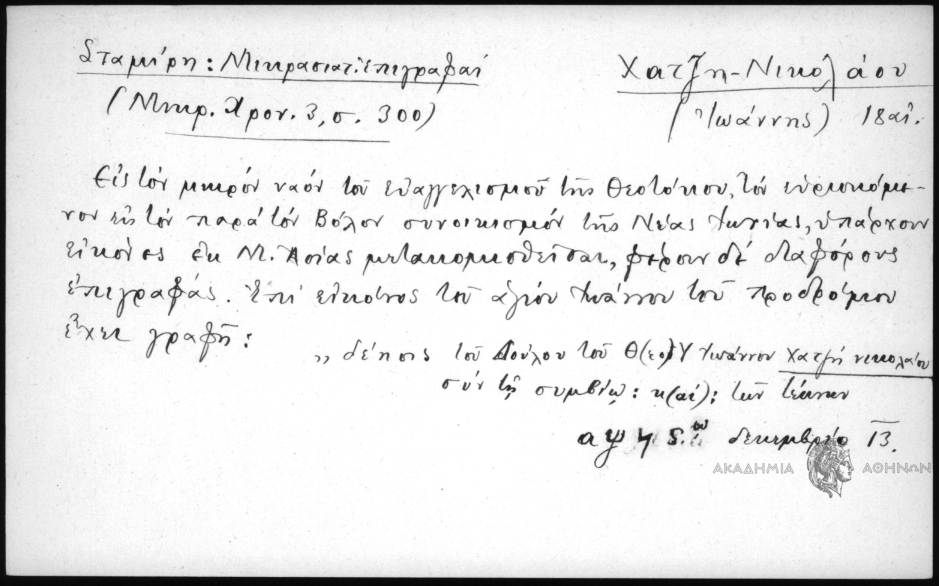 Σταμίρη: Μικρασιατ. ἐπιγραφαί
(Μικρ. Χρον. 3, σ. 300)
Χατζῆ-Νικολάου
(Ἰωάννης) 18 αἰ.
Εἰς τὸν μικρὸν ναὸν τοῦ εὐαγγελισμοῦ τῆς Θεοτόκου, τὸν εὑρισκόμε-
νον εἰς τὸν παρὰ τὸν Βόλον συνοικισμὸν τῆς Νέας Ἰωνίας, ὑπάρχουν
εἰκόνες ἐκ Μ. Ἀσίας μετακομισθεῖσαι, φέρουν δὲ διαφόρους
ἐπιγραφάς. Ἐπὶ εἰκόνος τοῦ ἁγίου Ἰωάννου τοῦ προδρόμου
ἔχει γραφῆ:
,, δέησις τοῦ δούλου τοῦ Θ(εο)Υ Ἰωάννου χατζῆ νικολάου
σὺν τῇ συμβίῳ: κ(αί): τῶν τέκνων
αψ δεκεμβρίο 13.
ΑΚΑΔΗΜΙΑ ΑΘΗΝΩΝ